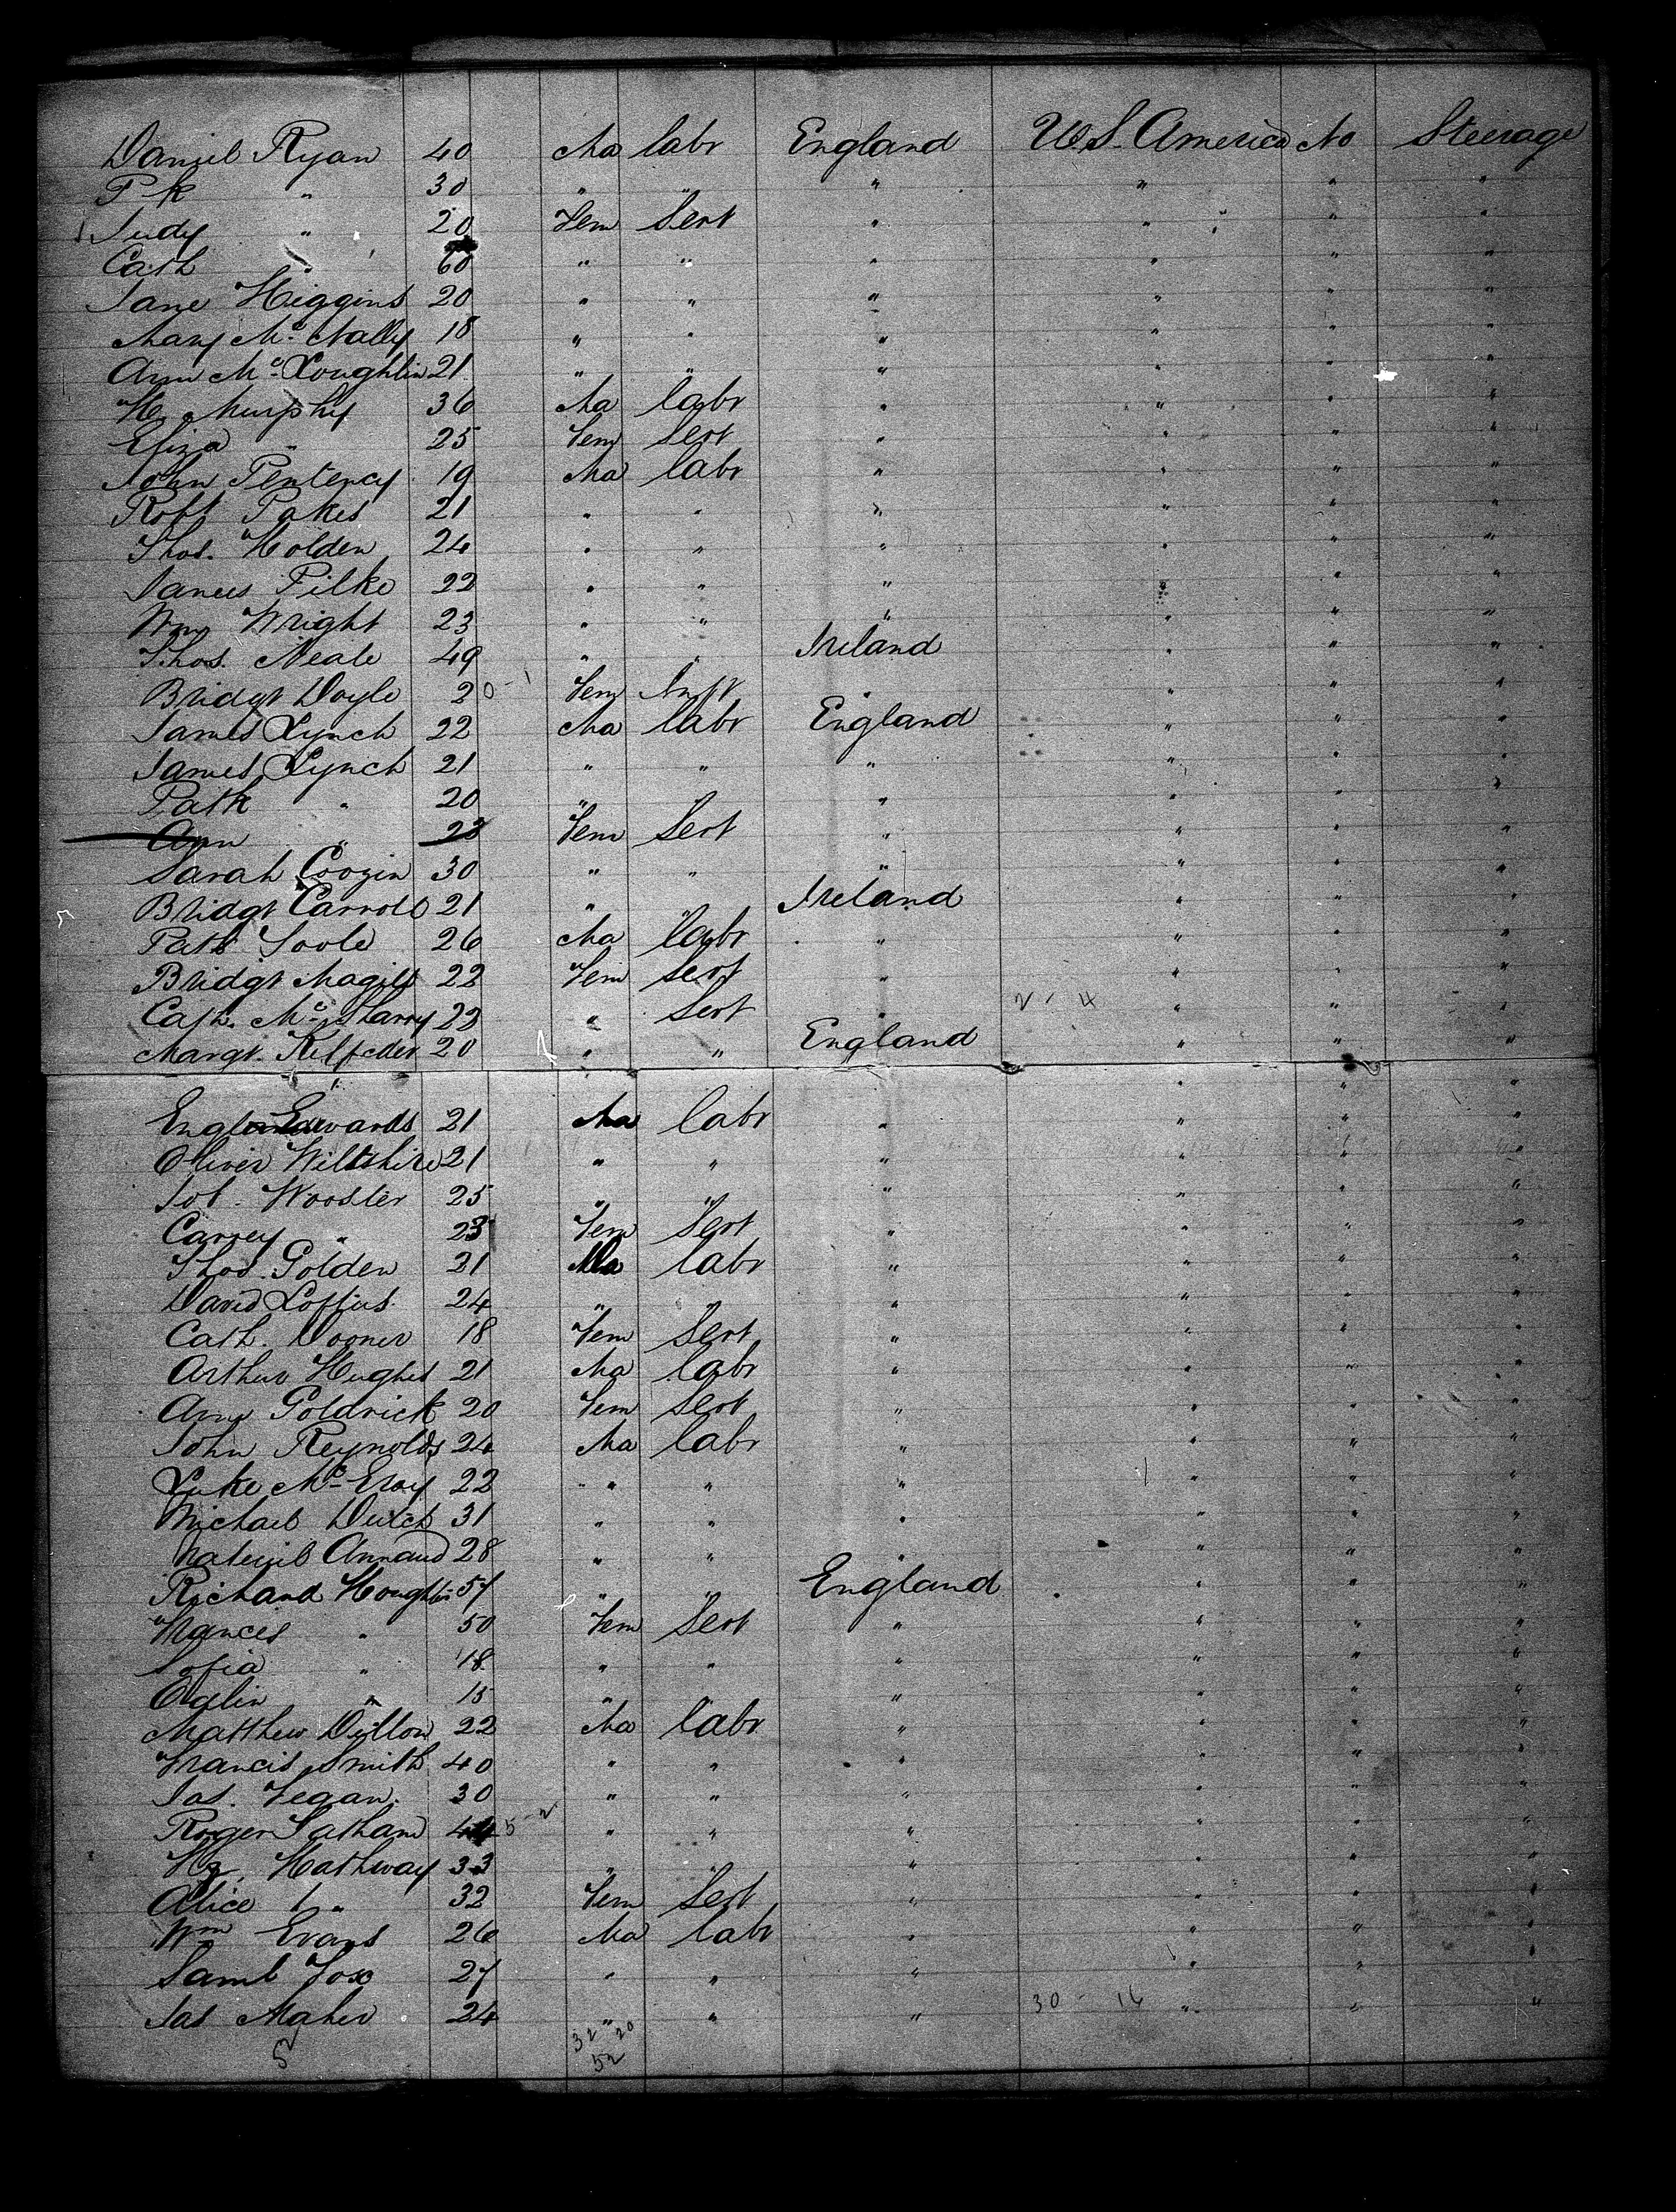 Daniel Ryan 40 Ma labr England U.S. America No Steerage
P-k " 30 " " " " " "
Judy " 20 Fem Sert " " " "
Cath " 60 " " " " " "
Jane Higgins 20 " " " " " "
Mary Mc Nally 18 " " " " " "
Ann Mc Loughlin 21 " " " " " "
Hy Murphy 36 Ma labr " " " "
Eliza " 25 Fem Sert " " " "
John Pentency 19 Ma labr " " " "
Robt Pakes 21 " " " " " "
Thos. Holden 24 " " " " " "
James Pilke 22 " " " " " "
Wm Wright 23 " " " " " "
Thos. Neale 49 " " Ireland " " "
Bridgt Doyle 20 - 1 Fem Inft " " " "
James Lynch 22 Ma labr England " " "
James Lynch 21 " " " " " "
Patk " 20 " " " " " "
Ann " 22 Fem Sert " " " "
Sarah Coogin 30 " " " " " "
Bridgt Carroll 21 " " Ireland " " "
Patk Toole 26 Ma labr " " " "
Bridgt Magill 22 Fem Sert " " " "
Cath. Mc Sharry 22 " Sert " 2 1 4 " " "
Margt. Kilfeder 20 " " England " " "
Edwards 21 Ma labr " " " "
Oliver Wiltshire 21 " " " " " "
Job. Wooster 25 " " " " " "
Carrey " 23 Fem Sert " " " "
Thos. Golden 21 Ma labr " " " "
David Loftus 24 " " " " " "
Cath. Dooner 18 Fem Sert " " " "
Arthur Hughes 21 Ma labr " " " "
Ann Goldrick 20 Fem Sert " " " "
John Reynolds 24 Ma labr " " " "
Luke Mc Elroy 22 " " " " " "
Michael Dutch 31 " " " " " "
Annaud 28 " " " " " "
Richard Houghton 57 " " England " " "
Frances " 50 Fem Sert " " " "
Sofia " 18 " " " " " "
Edlin " 15 " " " " " "
Matthew Dillon 22 Ma labr " " " "
Francis Smith 40 " " " " " "
Jas. Fegan 30 " " " " " "
Roger Latham 44 5 - 2 " " " " " "
Hy Hathway 33 " " " " " "
Alice " 32 Fem Sert " " " "
Wm Evans 26 Ma labr " " " "
Saml Fox 27 " " " " " "
Jas Maher 24 " " " 30 - 16 " " "
32 20
52 52